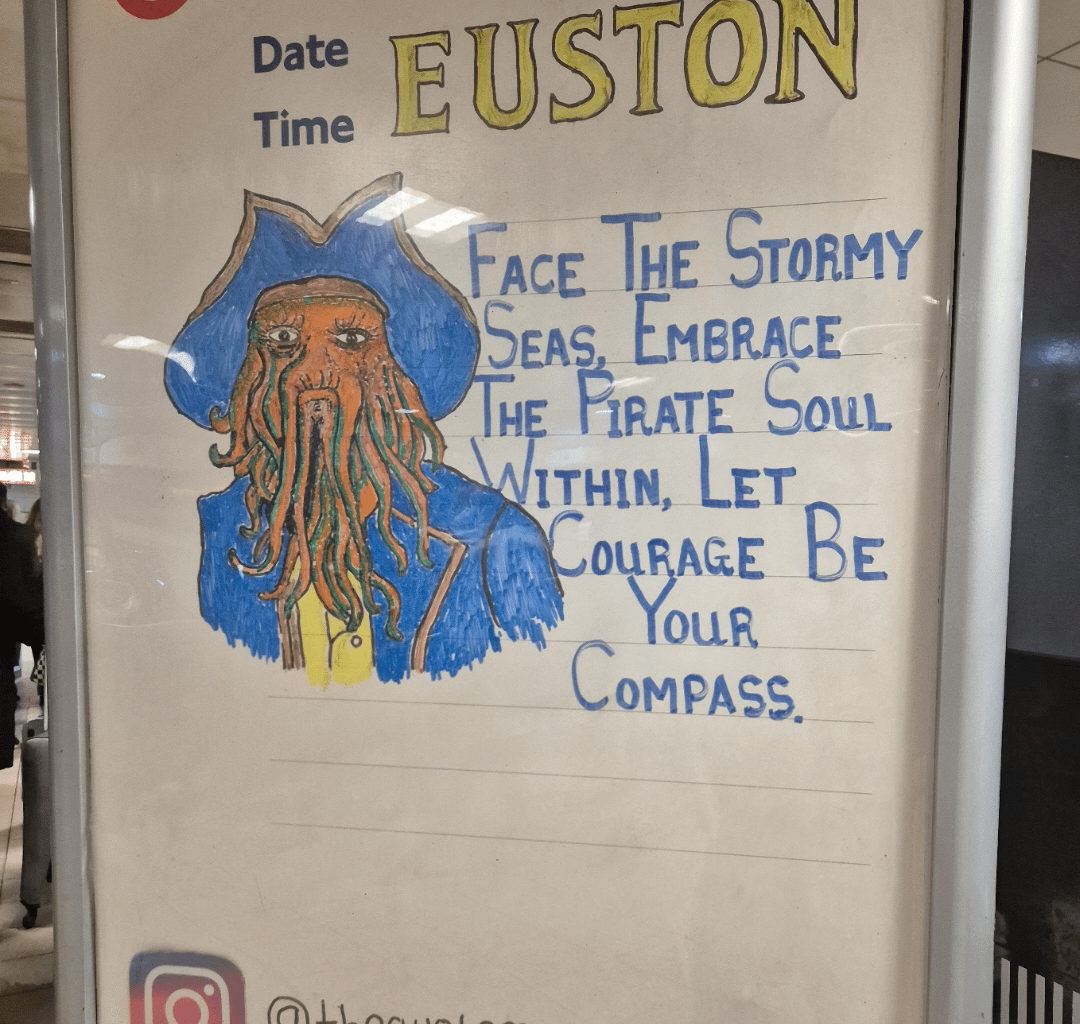 Date
EUSTON
Time
FACE THE STORMY
SEAS, EMBRACE
THE PIRATE SOUL
WITHIN, LET
COURAGE BE
YOUR
COMPASS.